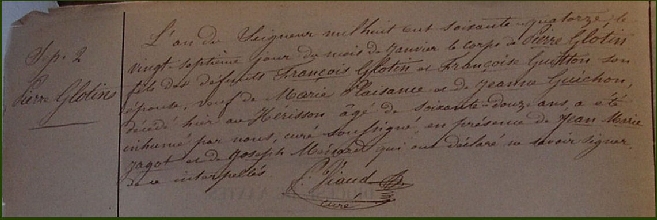 Sep. 2
Pierre Glotin
L'an du Seigneur mil huit cent soixante-quatorze, le
vingt-septième jour du mois de janvier le corps de Pierre Glotin
fils des défunts François Glotin et Françoise Guitton son
épouse, veuf de Marie Plaisance et de Jeanne Guichon,
décédé hier au Hérisson âgé de soixante-douze ans, a été
inhumé par nous, curé soussigné, en présence de Jean Marie
Jagot et de Joseph Ménard qui ont déclaré ne savoir signer
de ce interpellés.
Giaud
curé